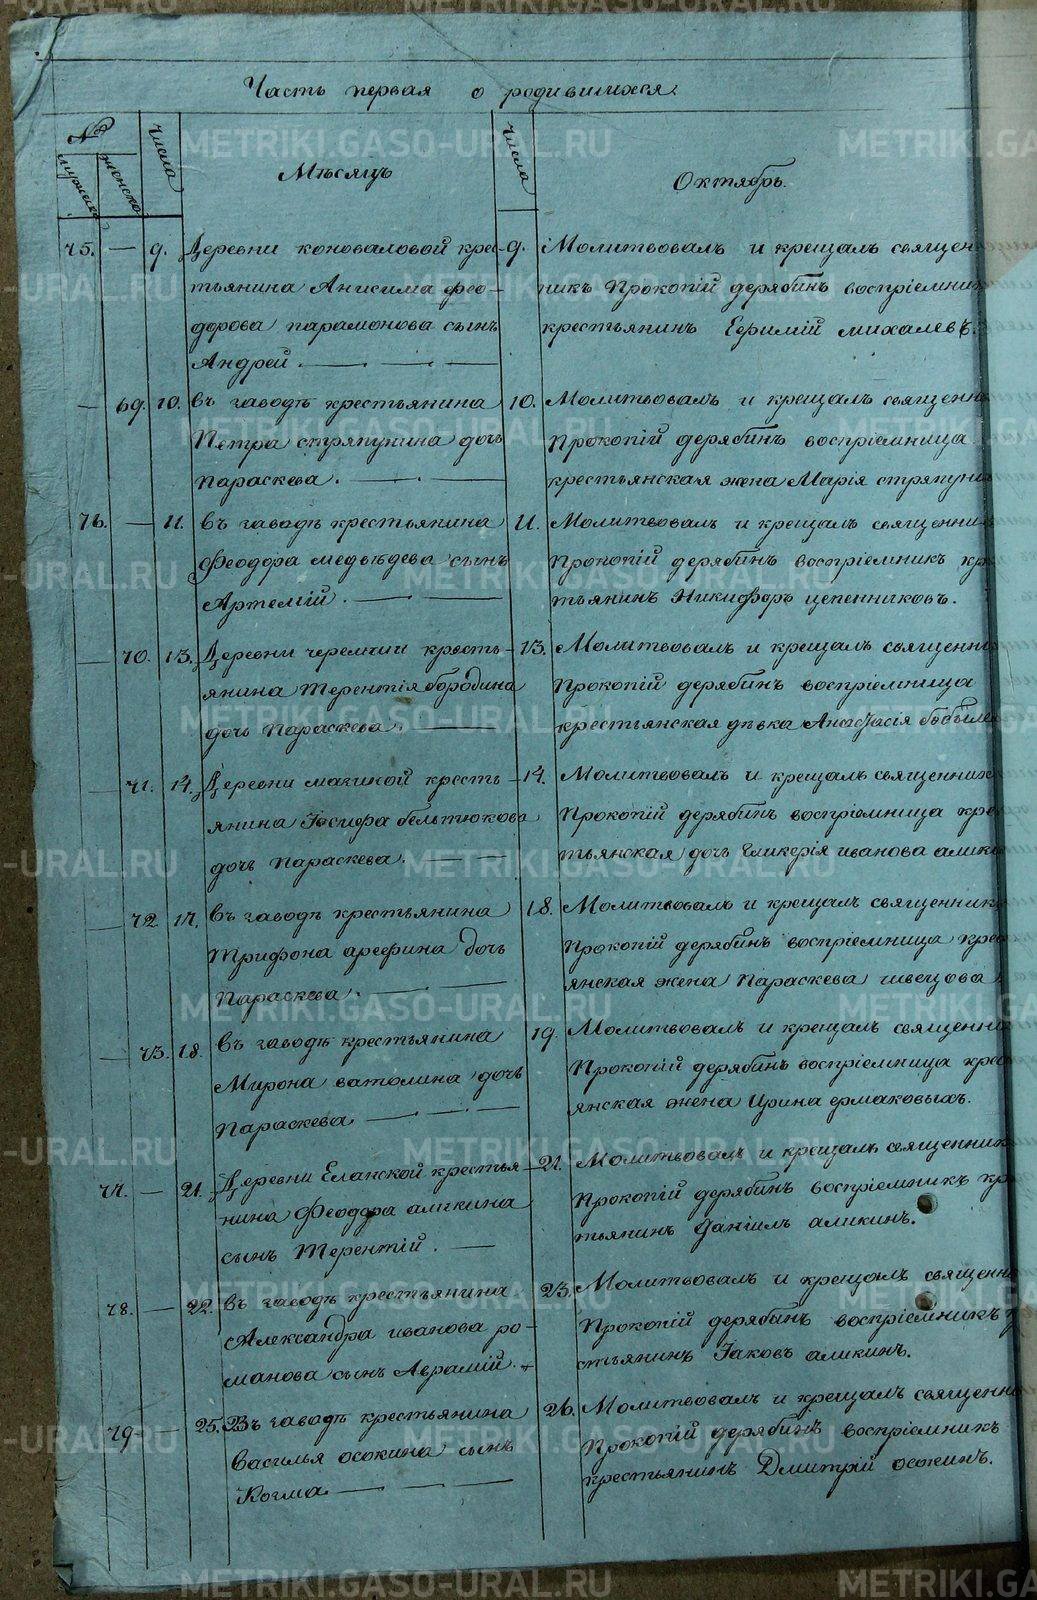 Часть первая о родившихся.
№
мужеска
женска
числа
Мѣсяцъ
числа
Октябрь.
75. — 9. Деревни коноваловой кре-
стьянина Анисима фео-
дорова парамонова сынъ
Андрей.
9. Молитвовалъ и крещалъ священ
никъ Прокопій дерябинъ воспріемник
крестьянинъ Ефимій михалевъ.
— 69. 10. въ заводѣ крестьянина
Петра стряпунина дочь
Параскева.
10. Молитвовалъ и крещалъ священн
Прокопій дерябинъ воспріемница
крестьянская жена Марія стряпуни
76. — 11. въ заводѣ крестьянина
Феодора медвѣдева сынъ
Артемій.
11. Молитвовалъ и крещалъ священник
Прокопій дерябинъ воспріемникъ кр
тьянинъ Никифоръ цепенниковъ.
— 70. 13. Деревни черемчии кресть-
янина Терентія бородина
дочь Параскева.
13. Молитвовалъ и крещалъ священни
Прокопій дерябинъ воспріемница
крестьянская дѣвка Анастасія бобыле
— 71. 14. Деревни мазиной кресть-
янина Іосифа бельтюкова
дочь Параскева.
14. Молитвовалъ и крещалъ священник
Прокопій дерябинъ воспріемница кре
тьянская дочь Гликерія иванова алики
— 72 17. въ заводѣ крестьянина
Трифона арефина дочь
Параскева.
18. Молитвовалъ и крещалъ священник
Прокопій дерябинъ воспріемница крес
янская жена Параскева швецова
— 73. 18. въ заводѣ крестьянина
Мирона ватолина дочь
Параскева
19. Молитвовалъ и крещалъ священни
Прокопій дерябинъ воспріемница крес
янская жена Ирина ермаковыхъ.
77. — 21. Деревни Еланской крестья-
нина Феодора аликина
сынъ Терентій.
21. Молитвовалъ и крещалъ священник
Прокопій дерябинъ воспріемникъ кр
тьянинъ Даніилъ аликинъ.
78. — 22. въ заводѣ крестьянина
Александра иванова ро-
манова сынъ Авраамій.
23. Молитвовалъ и крещалъ священни
Прокопій дерябинъ воспріемникъ
стьянинъ Іаковъ аликинъ.
79 — 25. Въ заводѣ крестьянина
Василья осокина сынъ
Козма
26. Молитвовалъ и крещалъ священни
Прокопій дерябинъ воспріемникъ
крестьянинъ Дмитрій осокинъ.
METRIKI.GASO-URAL.RU